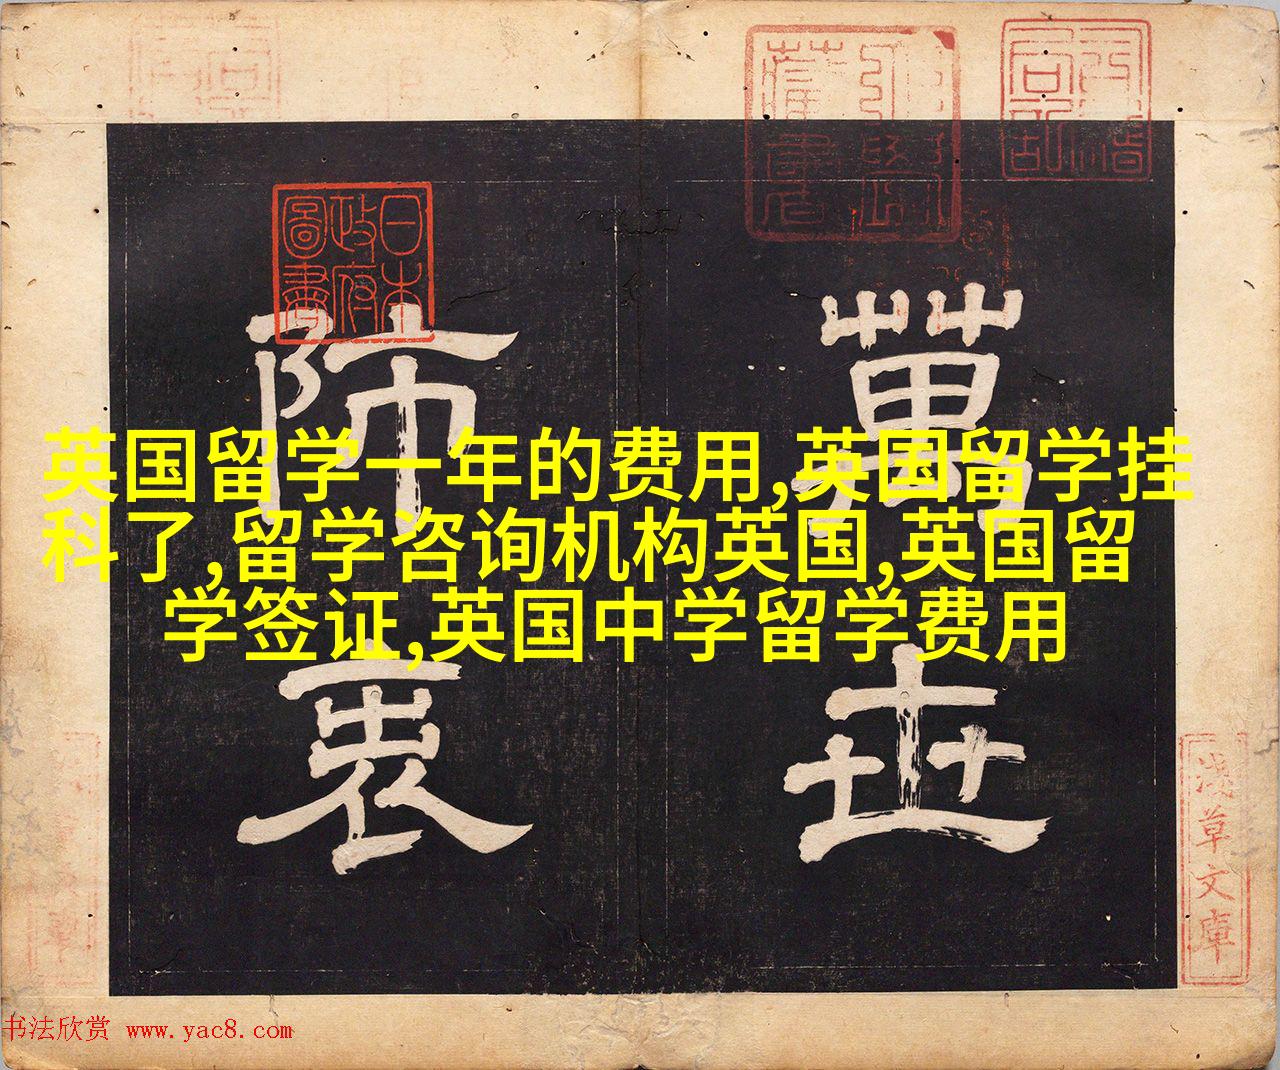 英国留学一年的费用,英国留学挂
科了,留学咨询机构英国,英国留
学签证,英国中学留学费用
萬世
師表
日本
政府
圖書
淺草文庫
书法欣赏 www.yac8.com